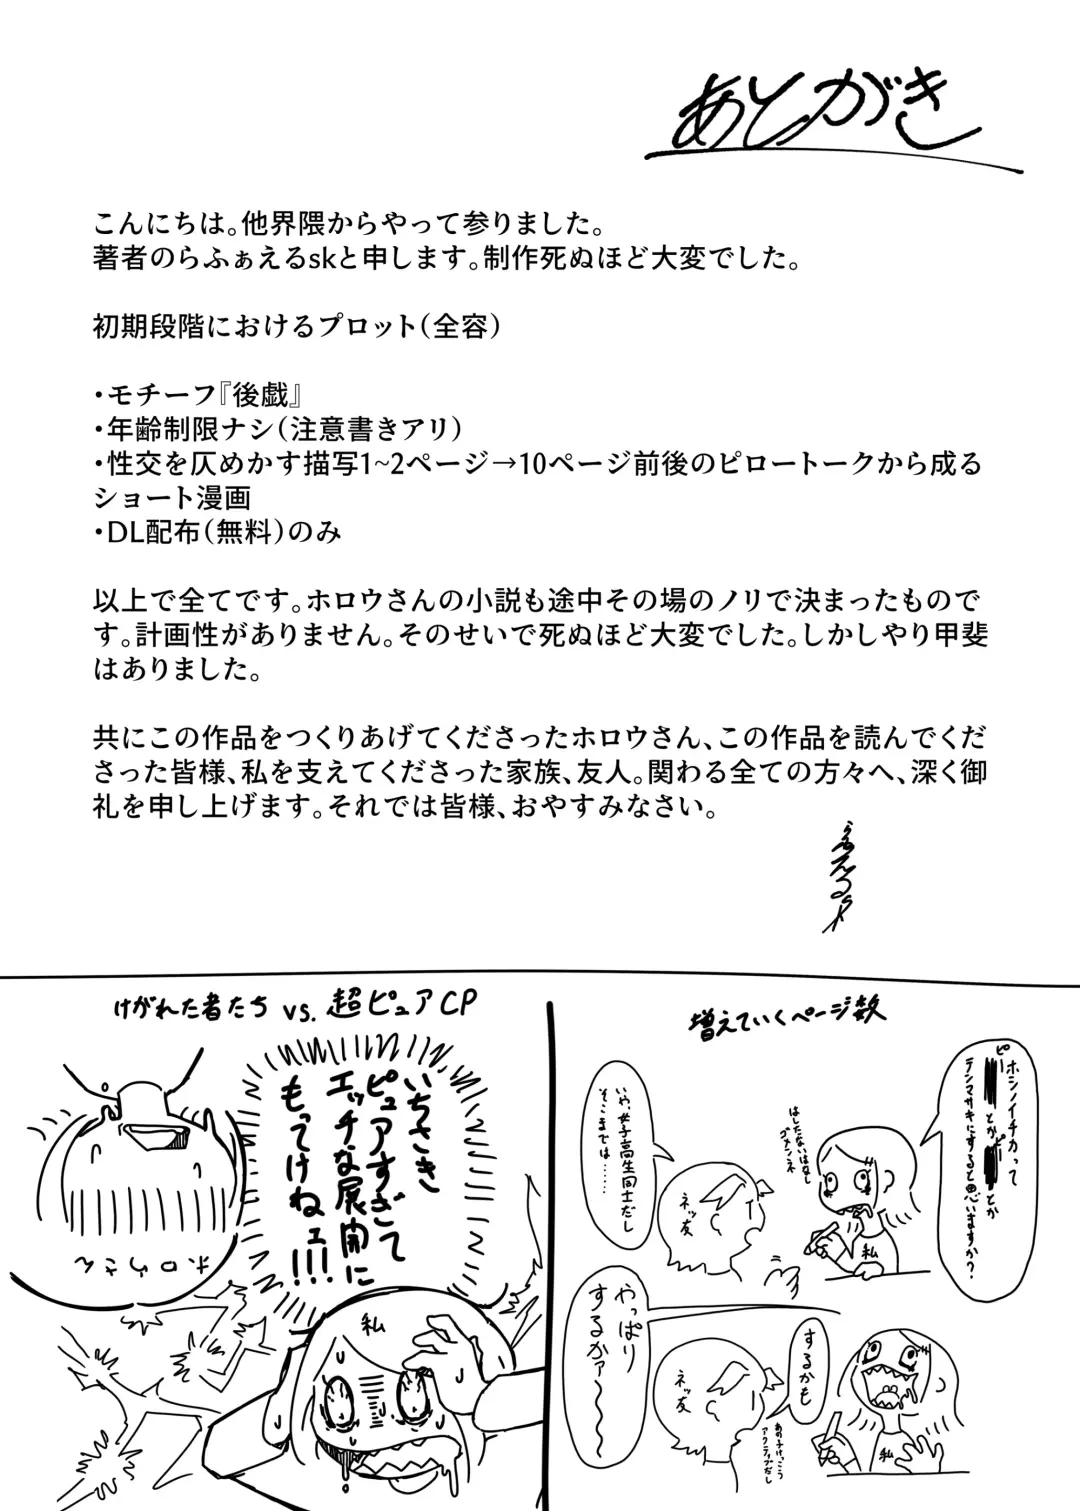 あとがき
こんにちは。他界隈からやって参りました。
著者のらふぁえるskと申します。制作死ぬほど大変でした。
初期段階におけるプロット(全容)
・モチーフ『後戯』
・年齢制限ナシ(注意書きアリ)
・性交を仄めかす描写1~2ページ→10ページ前後のピロートークから成る
ショート漫画
・DL配布(無料)のみ
以上で全てです。ホロウさんの小説も途中その場のノリで決まったもので
す。計画性がありません。そのせいで死ぬほど大変でした。しかしやり甲斐
はありました。
共にこの作品をつくりあげてくださったホロウさん、この作品を読んでくだ
さった皆様、私を支えてくださった家族、友人。関わる全ての方々へ、深く御
礼を申し上げます。それでは皆様、おやすみなさい。
増えていくページ数
ホシノイチカって
ピー
とか
とか
テンマサキにすると思いますか?
はしたないはなし
ゴメンネ
私
いや、女子高生同士だし
そこまでは……
ネッ友
やっぱり
するかァ〜
するかも
あの子けっこう
アクティブだし
ネッ友
私
けがれた者たち vs. 超ピュアCP
いちさき
ピュアすぎて
エッチな展開に
もってけねェ!!!
ホロウさん
私